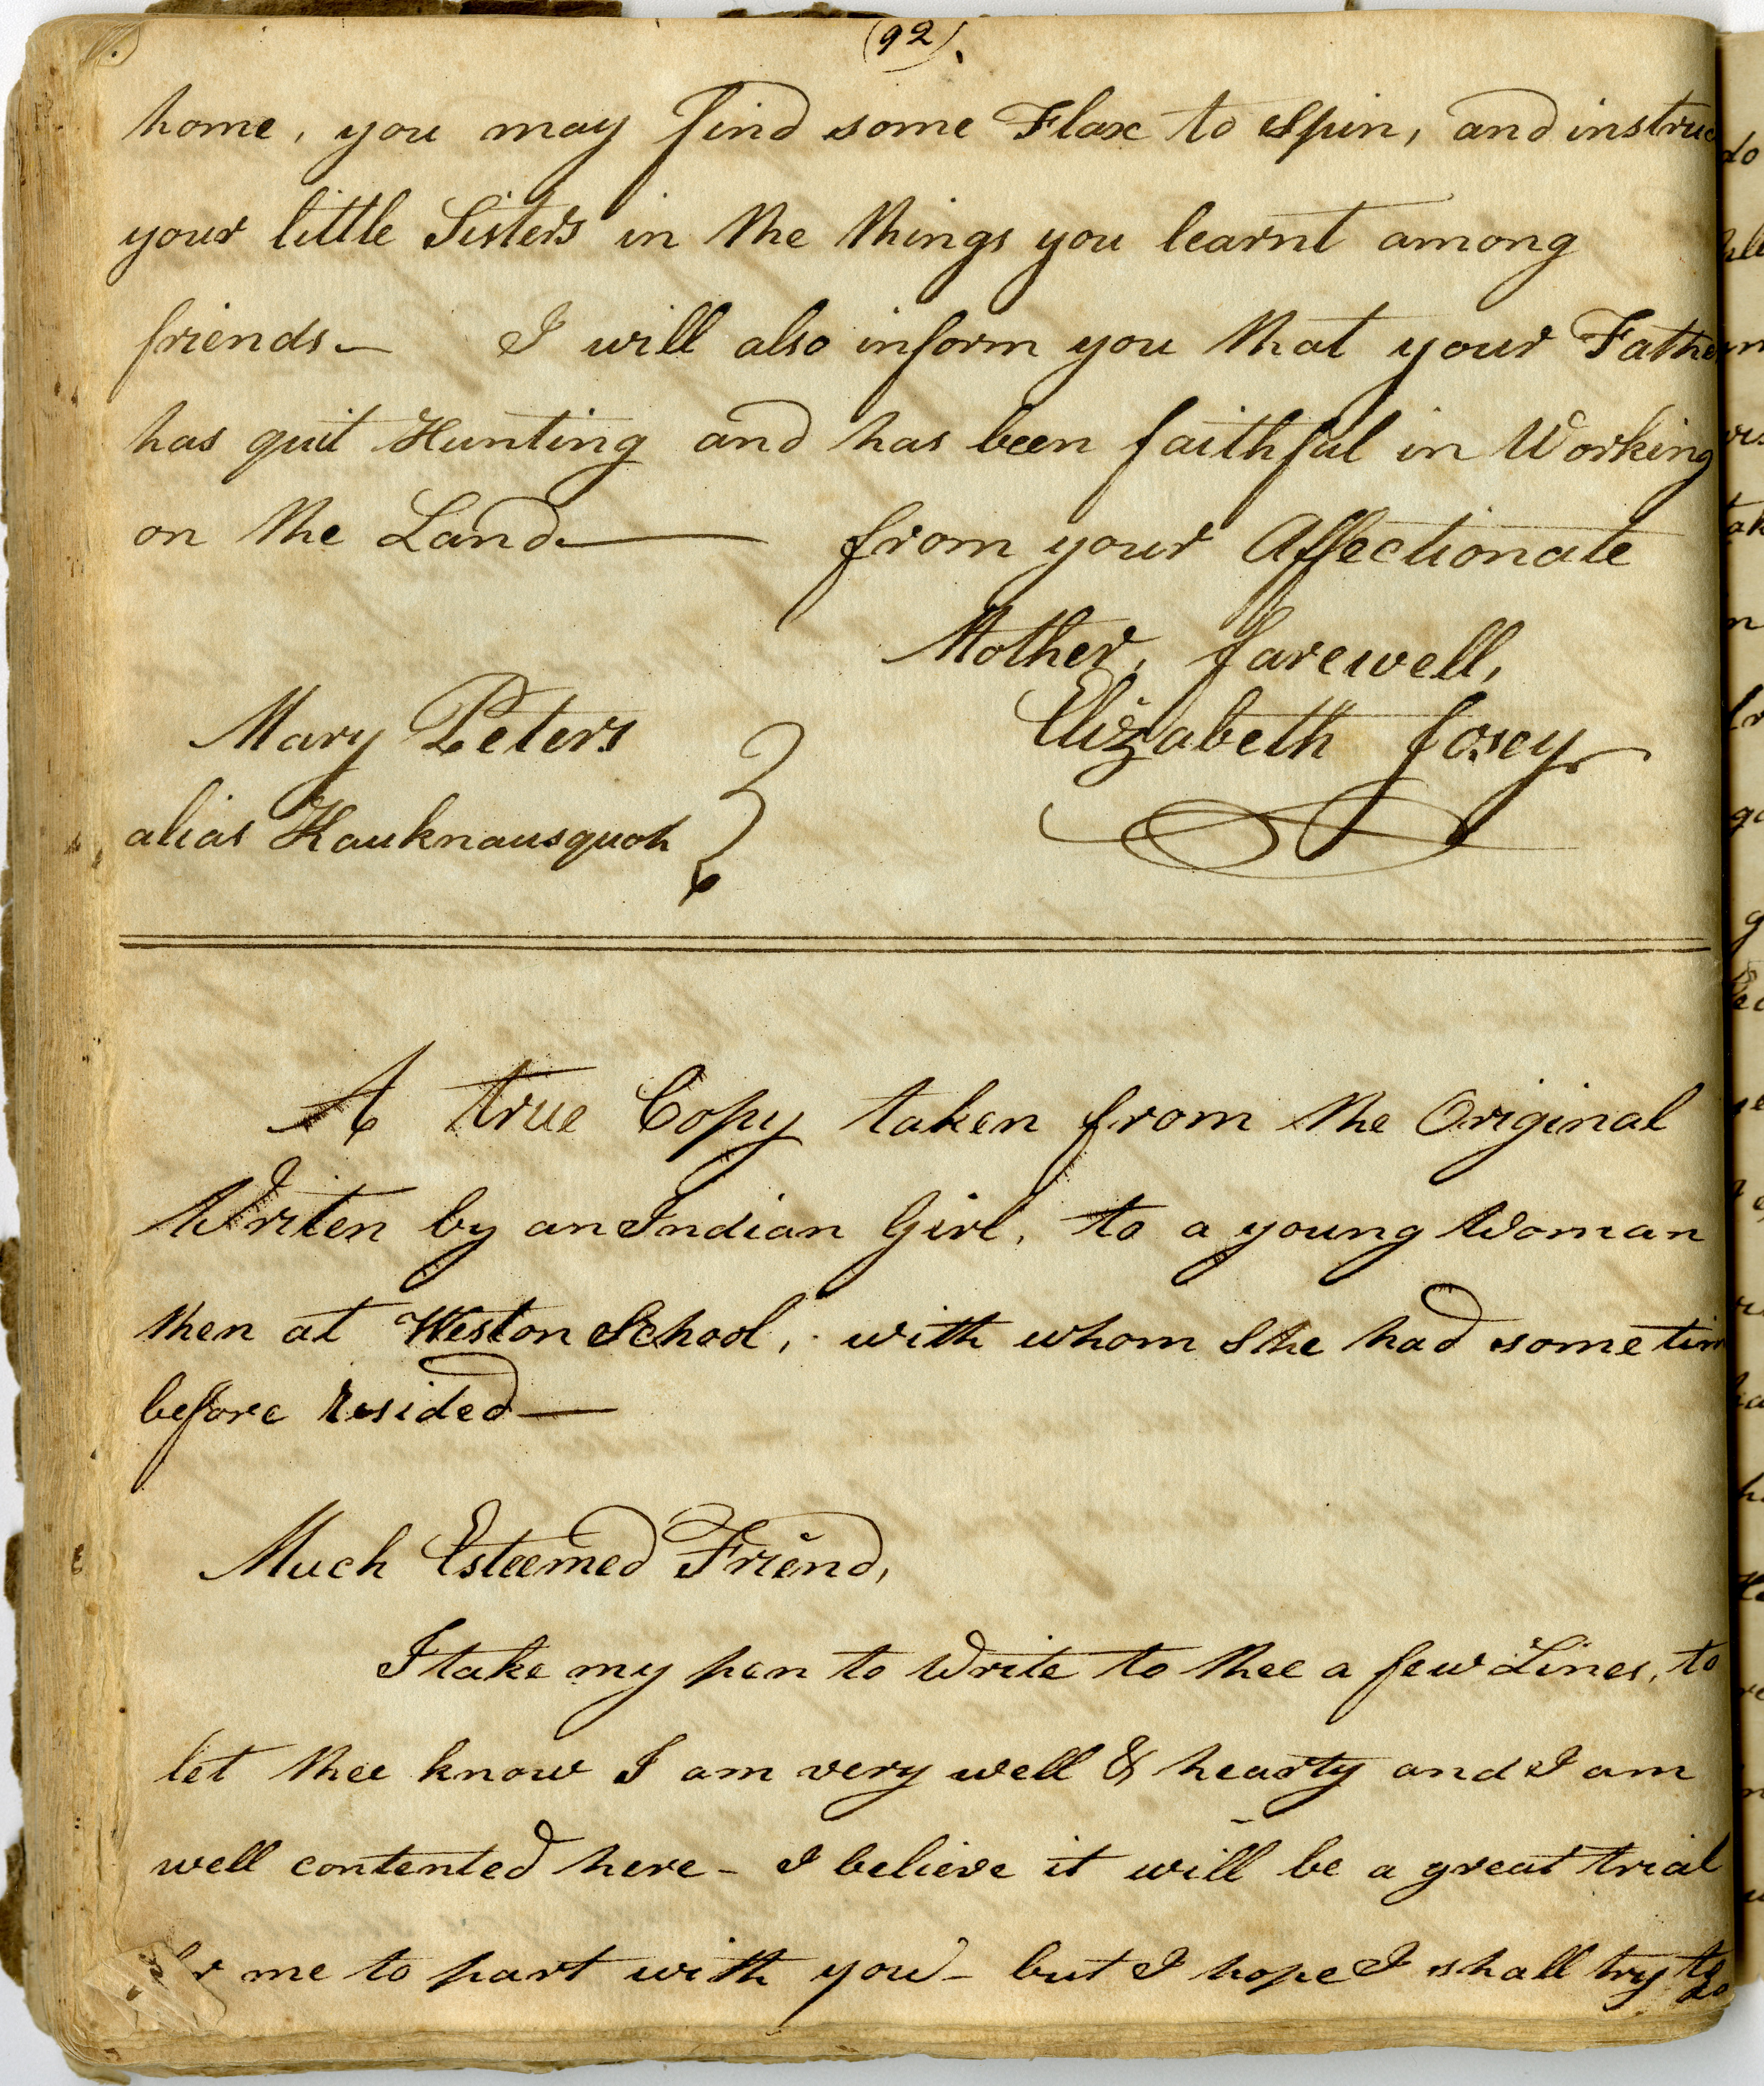 (92).
home, you may find some Flax to Spin, and instruc
your little Sisters in the things you learnt among
friends— I will also inform you that your Father
has quit Hunting and has been faithful in Working
on the Land— from your Affectionate
Mother, farewell,
Mary Peters Elizabeth Josey
alias Kauknausquoh
A true Copy taken from the Original
Writen by an Indian Girl, to a young Woman
then at Weston School, with whom She had some tim
before resided—
Much Esteemed Friend,
I take my pen to Write to thee a few Lines, to
let thee know I am very well & hearty and I am
well contented here - I believe it will be a great trial
me to part with you - but I hope I shall try to
do